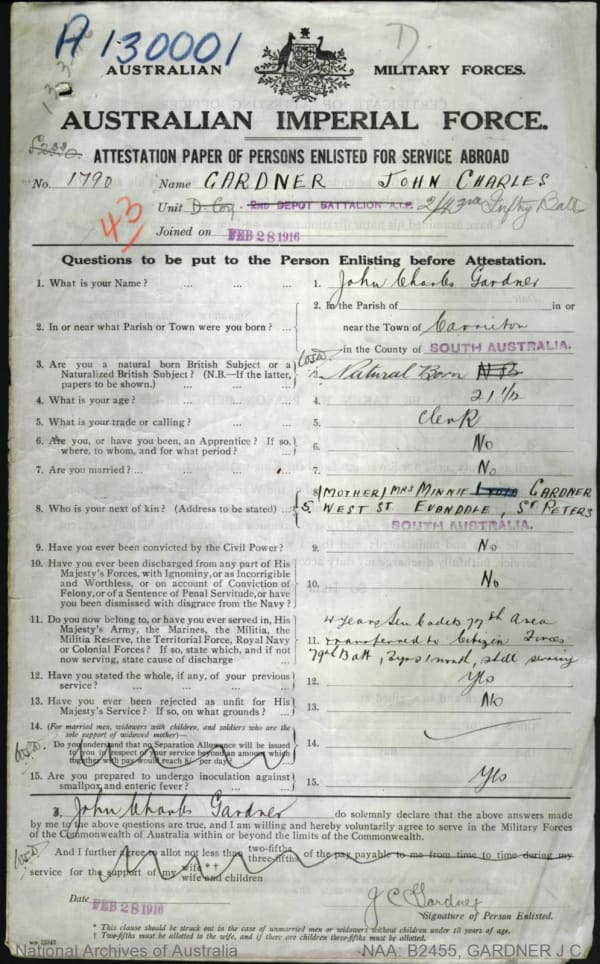 A 130001
D.
AUSTRALIAN MILITARY FORCES.
AUSTRALIAN IMPERIAL FORCE.
ATTESTATION PAPER OF PERSONS ENLISTED FOR SERVICE ABROAD
No. 1790 Name GARDNER JOHN CHARLES
43
Unit D. Coy. 2ND DEPOT BATTALION A.I.F. 2/43rd Inftry Batt
Joined on FEB 28 1916
Questions to be put to the Person Enlisting before Attestation.
1. What is your Name? ... ... ... 1. John Charles Gardner
2. In or near what Parish or Town were you born? ... 2. In the Parish of in or
near the Town of Carrieton
in the County of SOUTH AUSTRALIA.
3. Are you a natural born British Subject or a
Naturalized British Subject? (N.B.—If the latter,
papers to be shown.) ... ... 3. Natural Born
4. What is your age? ... ... ... 4. 21 1/12
5. What is your trade or calling? ... ... 5. Clerk
6. Are you, or have you been, an Apprentice? If so,
where, to whom, and for what period? ... 6. No
7. Are you married? ... ... ... 7. No
8. Who is your next of kin? (Address to be stated) ... 8 (MOTHER) MRS MINNIE GARDNER
5, WEST ST EVANDALE, ST PETERS
SOUTH AUSTRALIA.
9. Have you ever been convicted by the Civil Power? 9. No
10. Have you ever been discharged from any part of His
Majesty's Forces, with Ignominy, or as Incorrigible
and Worthless, or on account of Conviction of
Felony, or of a Sentence of Penal Servitude, or have
you been dismissed with disgrace from the Navy? 10. No
11. Do you now belong to, or have you ever served in, His
Majesty's Army, the Marines, the Militia, the
Militia Reserve, the Territorial Force, Royal Navy
or Colonial Forces? If so, state which, and if not
now serving, state cause of discharge ... 11. 4 years Sen Cadets 79th Area
transferred to Citizen Forces
79th Batt, 2yrs 1 month, still serving
12. Have you stated the whole, if any, of your previous
service? ... ... ... 12. Yes
13. Have you ever been rejected as unfit for His
Majesty's Service? If so, on what grounds? ... 13. No
14. (For married men, widowers with children, and soldiers who are the
sole support of widowed mother)—
Do you understand that no Separation Allowance will be issued
to you in respect of your service beyond an amount which
together with pay would reach 8/- per day? 14.
15. Are you prepared to undergo inoculation against
smallpox and enteric fever? ... ... 15. Yes
I, John Charles Gardner do solemnly declare that the above answers made
by me to the above questions are true, and I am willing and hereby voluntarily agree to serve in the Military Forces
of the Commonwealth of Australia within or beyond the limits of the Commonwealth.
And I further agree to allot not less than two-fifths three-fifths of the pay payable to me from time to time during my
service for the support of my wife* † wife and children
Date FEB 28 1916
J C Gardner
Signature of Person Enlisted.
* This clause should be struck out in the case of unmarried men or widowers without children under 18 years of age.
† Two-fifths must be allotted to the wife, and if there are children three-fifths must be allotted.
National Archives of Australia NAA: B2455, GARDNER J C